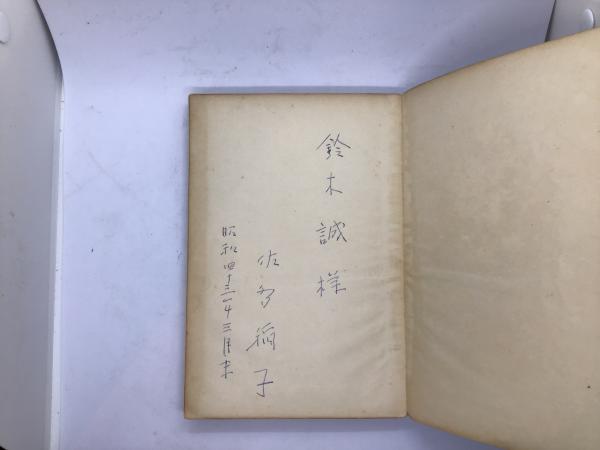 鈴木誠様
佐多稲子
昭和四十三年三月末